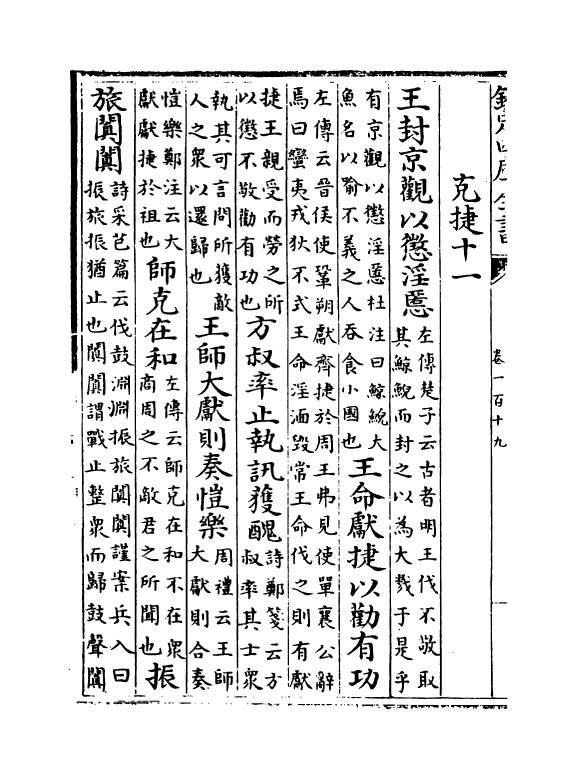 欽定四庫全書 卷一百十九
克捷十一
王封京觀以懲淫慝左傳楚子云古者明王伐不敬取其鯨鯢而封之以為大戮于是乎
有京觀以懲淫慝杜注曰鯨鯢大魚名以喻不義之人吞食小國也王命獻捷以勸有功
左傳云晉侯使鞏朔獻齊捷於周王弗見使單襄公辭焉曰蠻夷戎狄不式王命淫湎毀常王命伐之則有獻
捷王親受而勞之所以懲不敬勸有功也方叔率止執訊獲醜詩鄭箋云方叔率其士衆
執其可言問所獲敵人之衆以還歸也王師大獻則奏愷樂周禮云王師大獻則合奏
愷樂鄭注云大獻獻捷於祖也師克在和左傳云師克在和不在衆商周之不敵君之所聞也振
旅闐闐詩采芑篇云伐鼓淵淵振旅闐闐謹案兵入曰振旅振猶止也闐闐謂戰止整衆而歸鼓聲闐